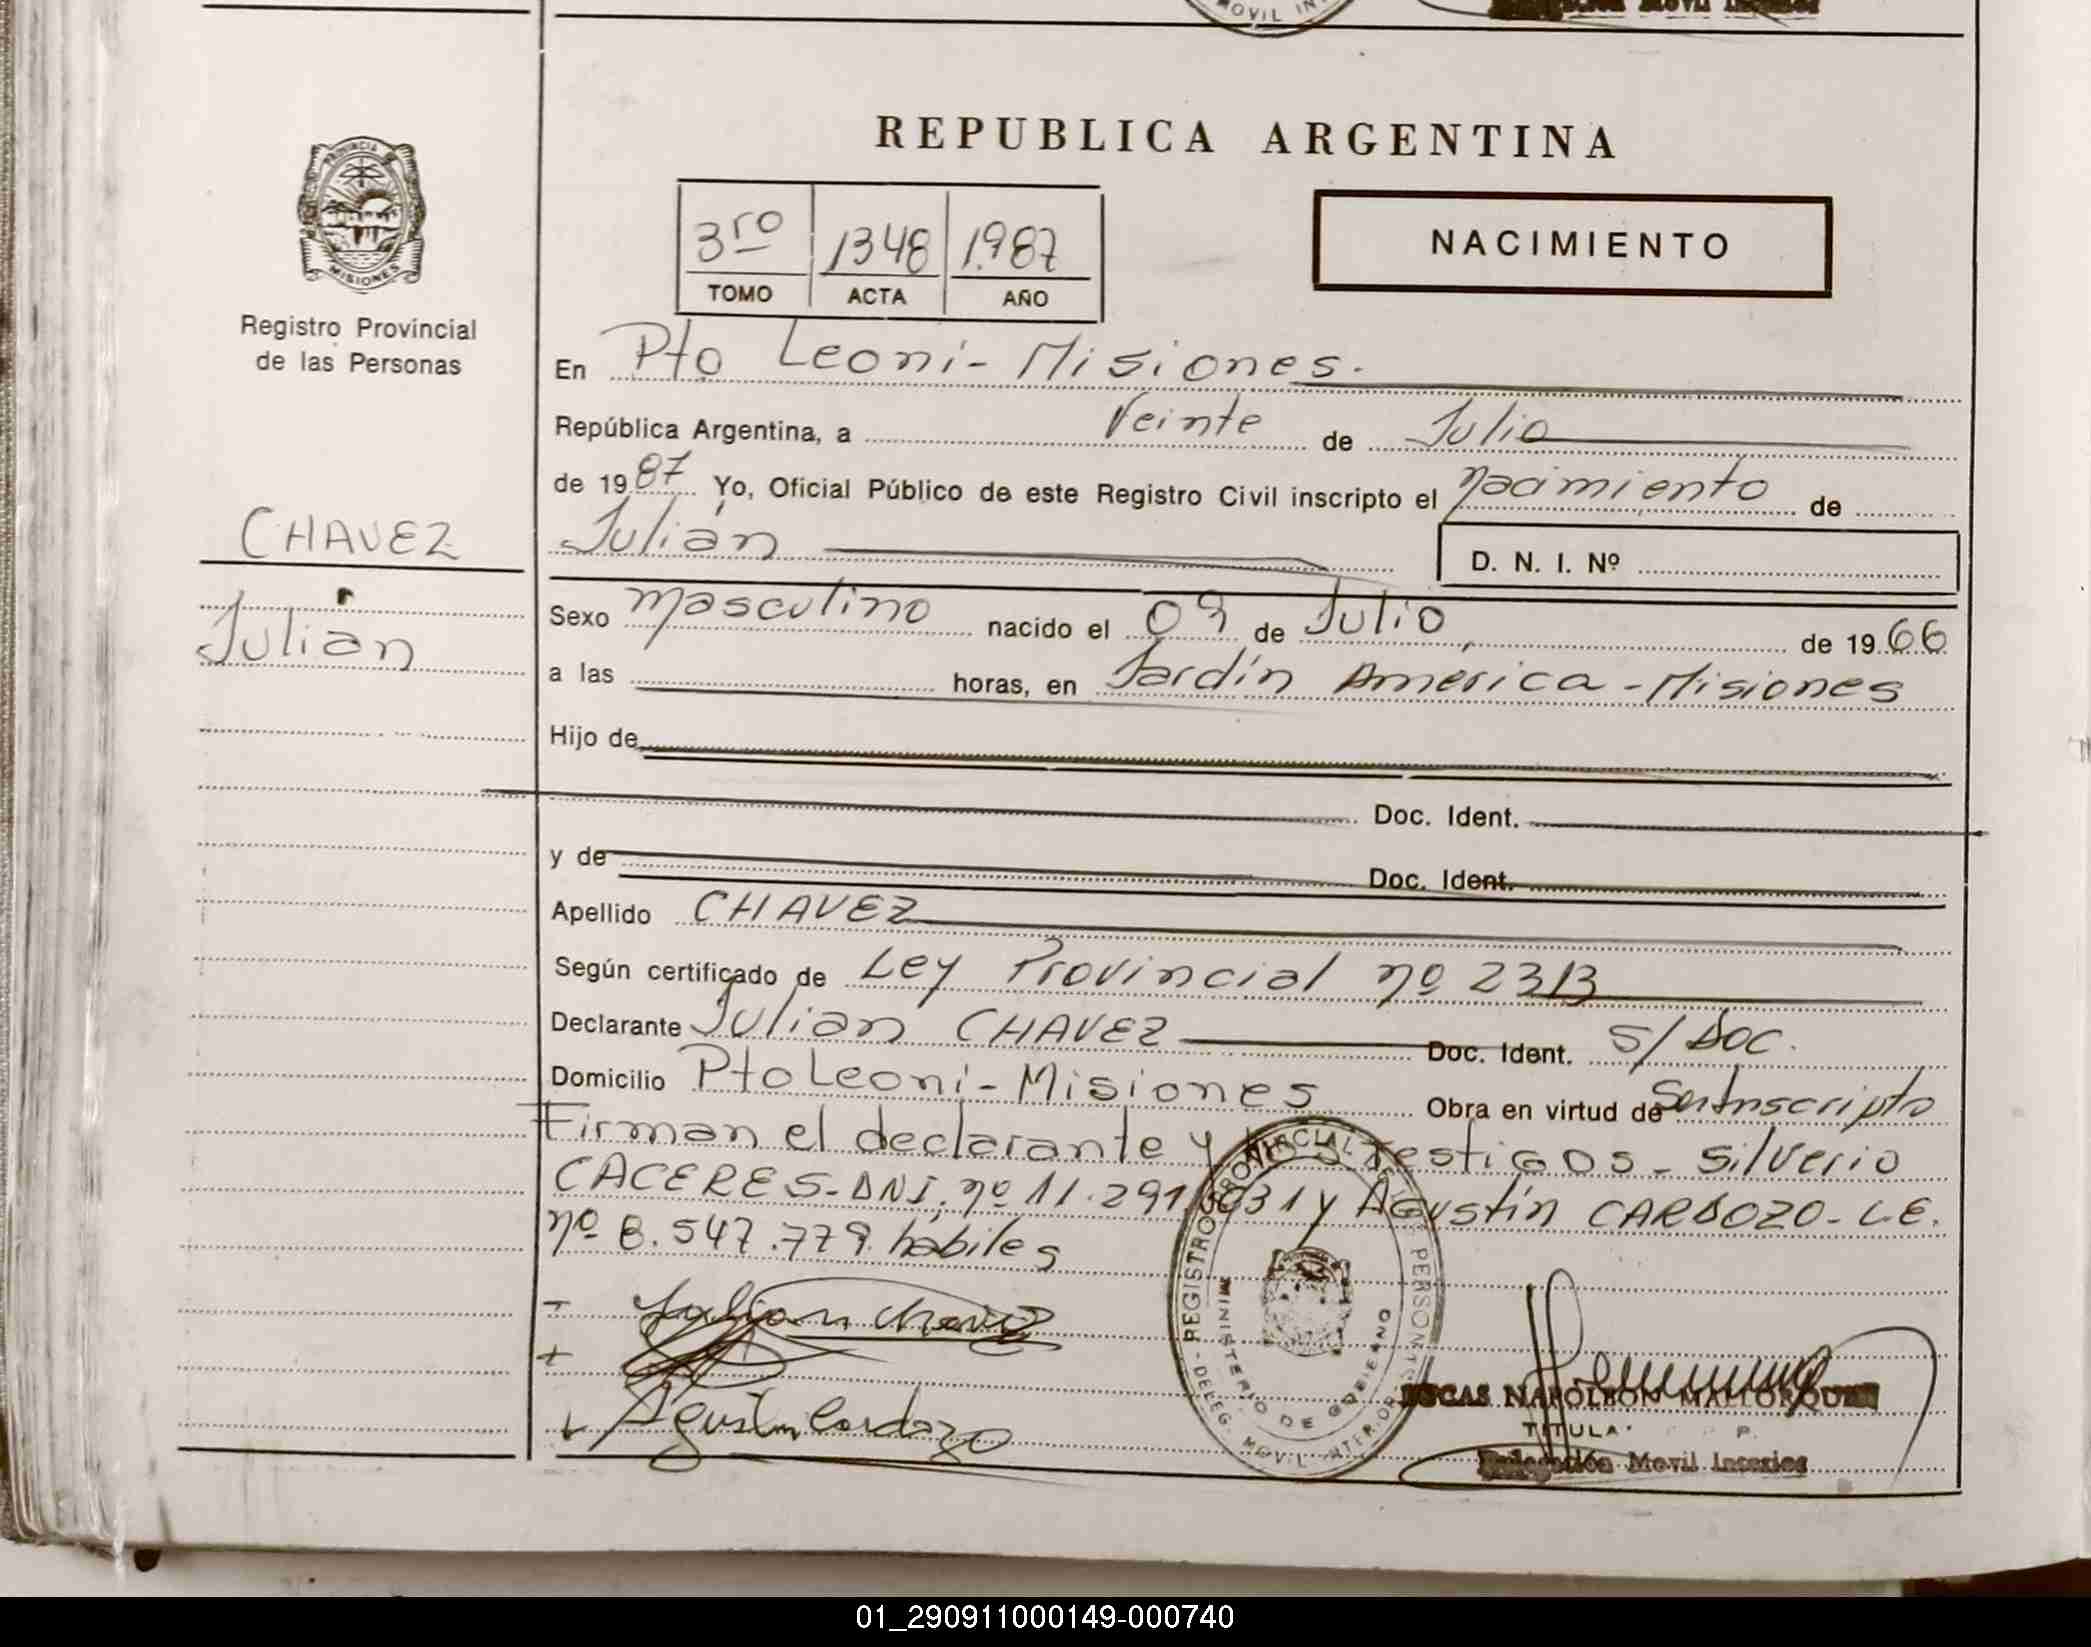 MOVIL IN
Delegación Movil Interior
REPUBLICA ARGENTINA
PROVINCIA DE
MISIONES
Registro Provincial
de las Personas
3ro 1348 1.987
TOMO ACTA AÑO
NACIMIENTO
En Pto Leoni - Misiones.
República Argentina, a Veinte de Julio
de 1987 Yo, Oficial Público de este Registro Civil inscripto el nacimiento de
CHAVEZ
Julián
Julián
D. N. I. Nº
Sexo masculino nacido el 09 de Julio, de 1966
a las horas, en Jardín América - Misiones
Hijo de
Doc. Ident.
y de Doc. Ident.
Apellido CHAVEZ
Según certificado de Ley Provincial nº 2313
Declarante Julián CHAVEZ Doc. Ident. S/DOC.
Domicilio Pto Leoni - Misiones Obra en virtud de Ser Inscripto
Firman el declarante y testigos - Silverio
CACERES - DNI. nº 11.291. 31 y Agustín CARDOZO - L.E.
nº 8.547.779. hábiles
Julian Chavez
Agustin Cardozo
REGISTRO PROVINCIAL DE LAS PERSONAS
MINISTERIO DE GOBIERNO
DELEG. MOVIL INTERIOR
LUCAS NAPOLEON MALLORQUIN
TITULAR R. P.
Delegación Movil Interior
01_290911000149-000740